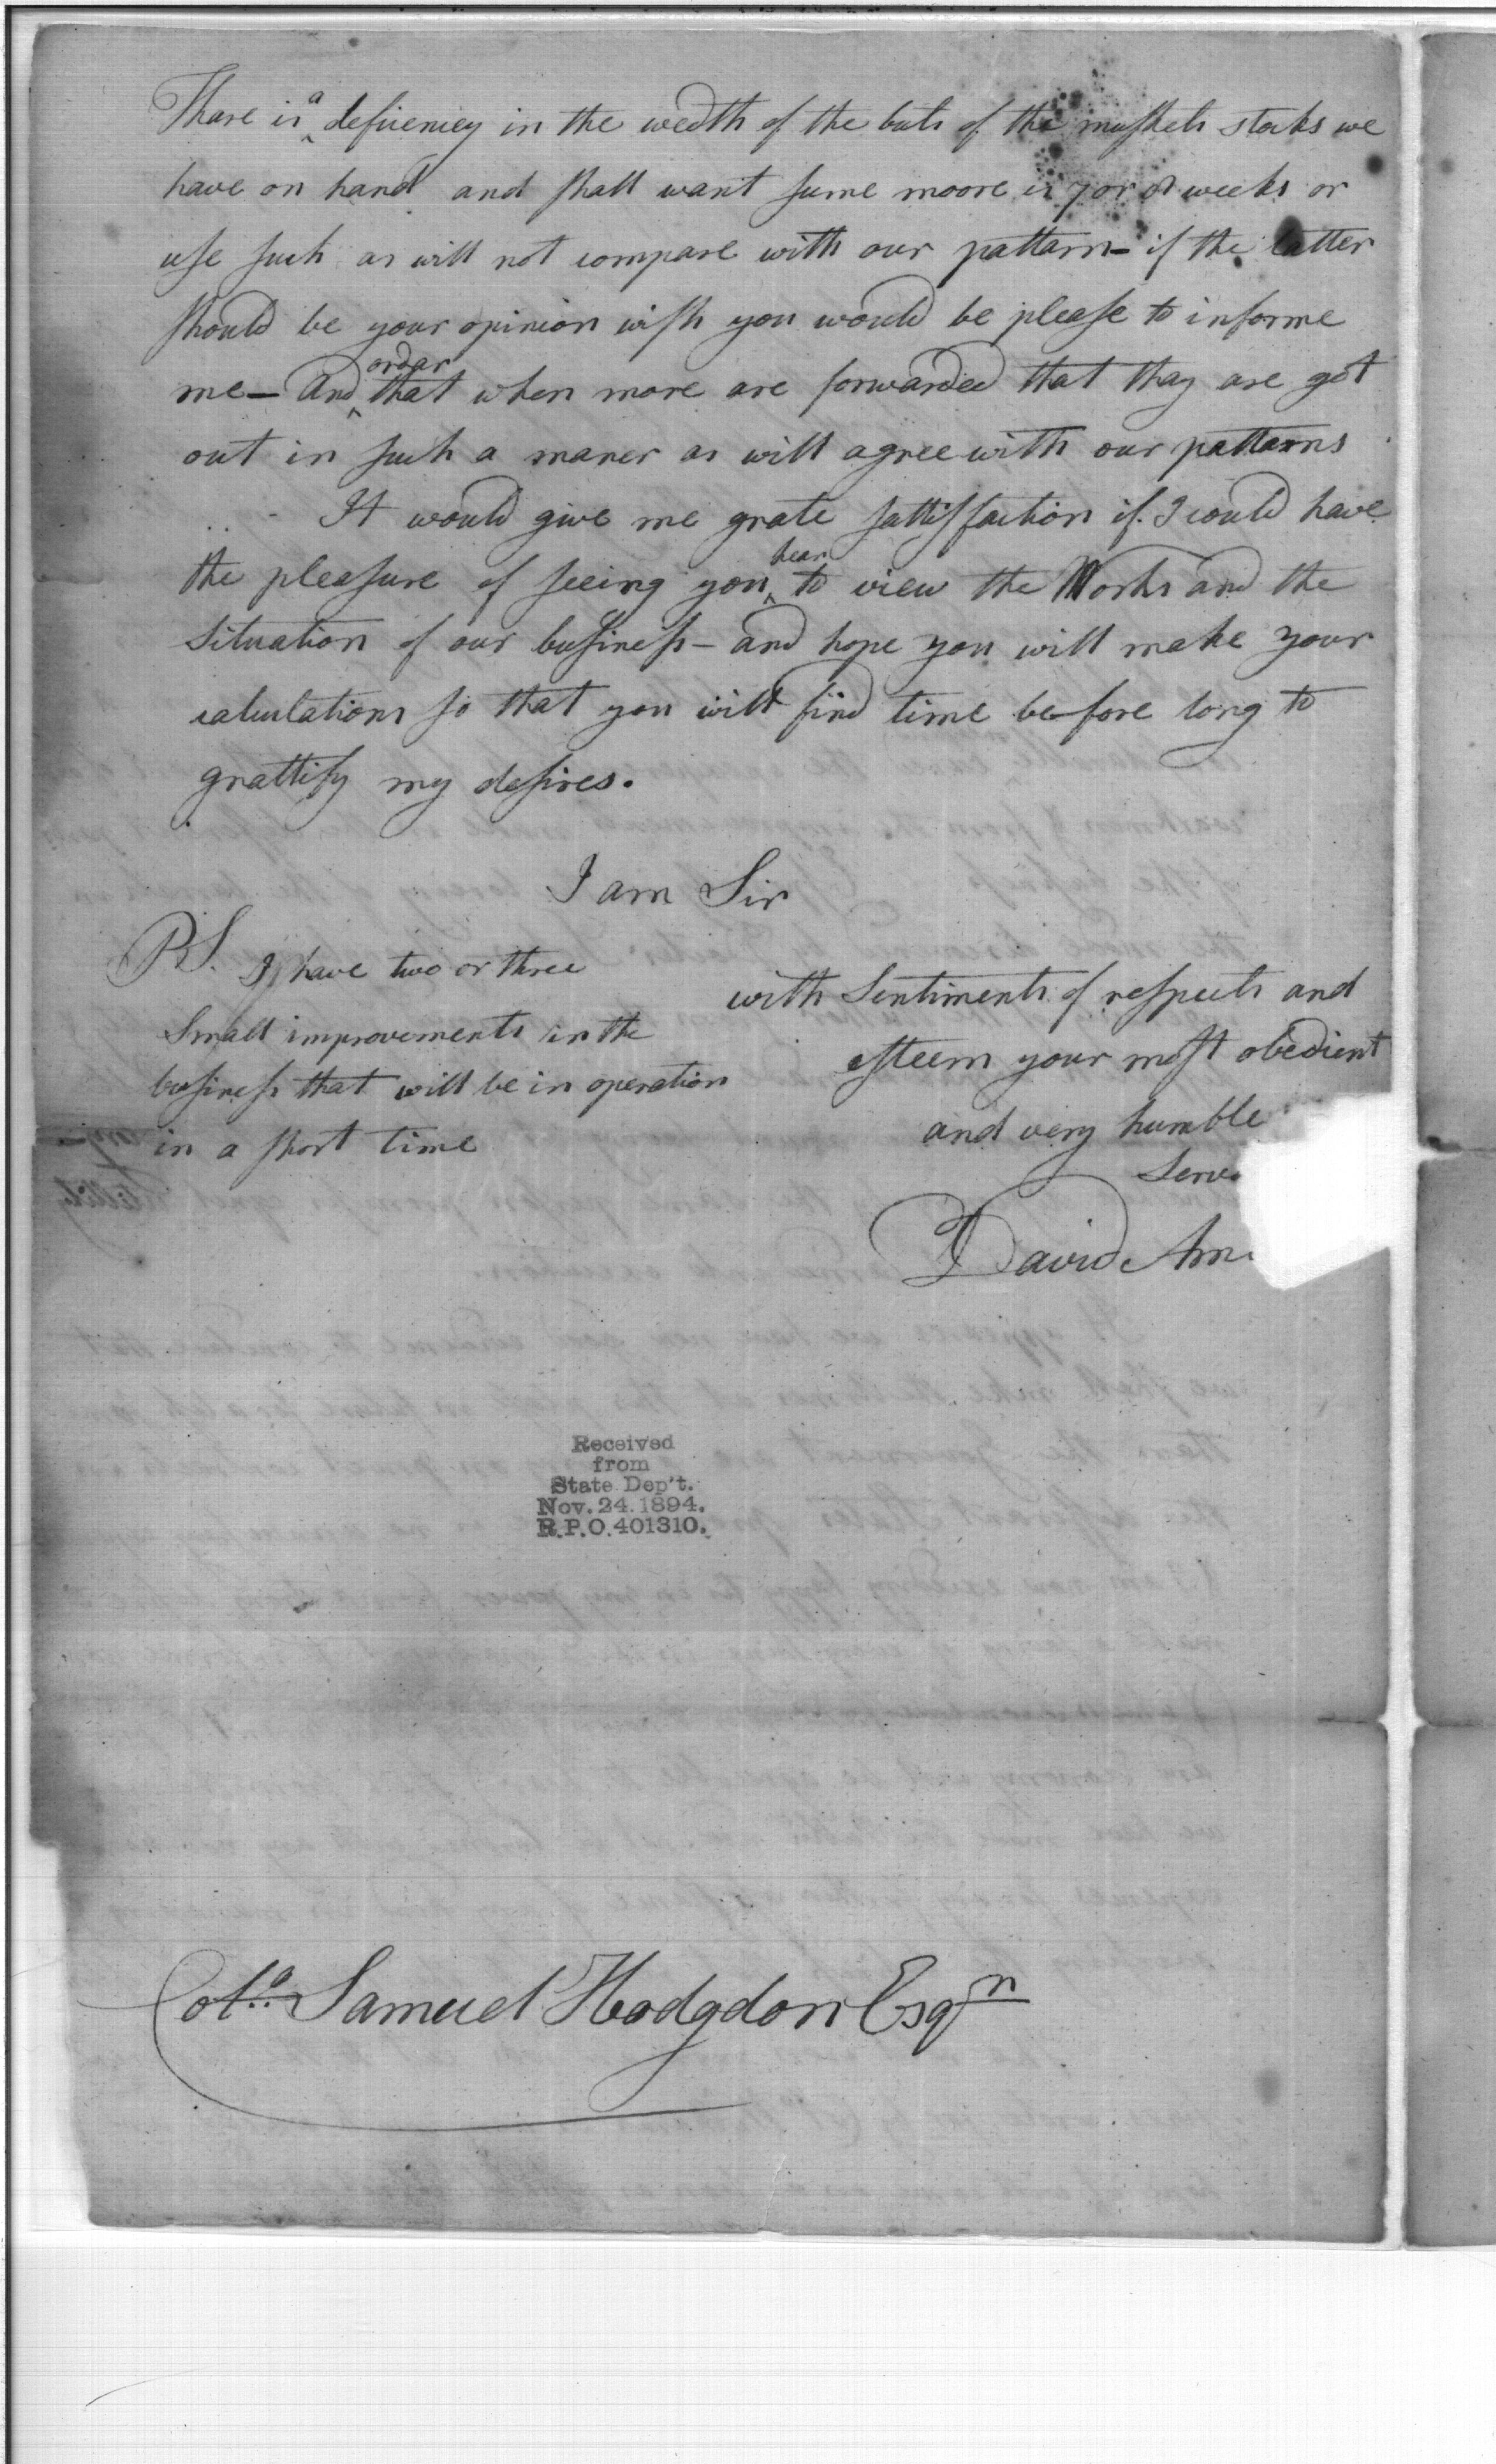 Thare is a defiiency in the wedth of the buts of the muskets stocks we
have on hand and shall want sume moore in 7 or 8 weeks or
use such as will not compare with our pattarn - if the latter
should be your opinion wish you would be please to informe
me - and ordar that when more are forwarded that thay are got
out in such a maner as will agree with our pattarns
It would give me grate sattisfaction if I could have
the pleasure of seeing you hear to view the Works and the
situation of our business - and hope you will make your
calculations so that you will find time before long to
grattify my desires.
I am Sir
with Sentiments of respects and
esteem your most obedient
and very humble
Serv
David Am
P.S. I have two or three
Small improvements in the
business that will be in operation
in a short time
Received
from
State Dep't.
Nov. 24. 1894.
R.P.O. 401310.
Colo. Samuel Hodgdon Esqr